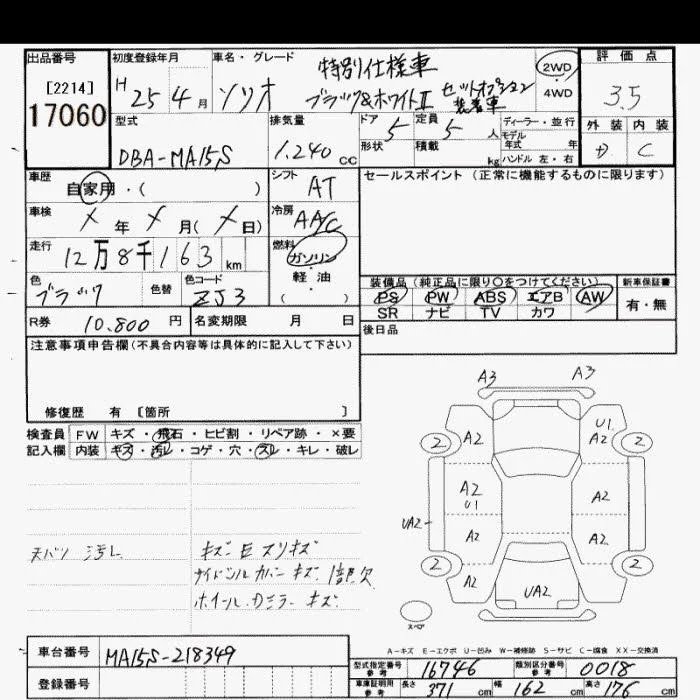 出品番号
[2214]
17060
初度登録年月
H 25 4月
車名・グレード
ソリオ
特別仕様車
ブラック&ホワイトII セットオプション装着車
2WD
・
4WD
評価点
3.5
外装 内装
D C
型式
DBA-MA15S
排気量
1.240 cc
ドア 5
形状
定員 5 人
積載 kg
ディーラー・並行
モデル年式 年
ハンドル 左・右
車歴
自家用・( )
シフト
AT
車検
X年X月(X日)
冷房
AAC
走行
12万8千163km
燃料
ガソリン
・
軽油
( )
色
ブラック
色替
色コード
ZJ3
R券 10.800円
名変期限 月 日
セールスポイント (正常に機能するものに限ります)
装備品 (純正品に限り○をつけてください)
PS PW ABS エアB AW
SR ナビ TV カワ
新車保証書
有・無
後日品
注意事項申告欄(不具合内容等は具体的に記入して下さい)
修復歴 有 [箇所 ]
検査員 FW キズ・飛石・ヒビ割・リペア跡・×要
記入欄 内装 キズ・汚レ・コゲ・穴・スレ・キレ・破レ
天バリ 汚レ
キズ E スリキズ
サイドシル カバー キズ 1部欠
ホイール.Dミラー キズ
A3 A3
2 A2 U1 A2 2
A2 U1 A2
UA2
A2 A2
2 A2 UA2 A2 2
スペア
A-キズ E-エクボ U-凹み W-補修跡 S-サビ C-腐食 XX-交換済
車台番号 MA15S-218349
登録番号
型式指定番号 参考 16746
類別区分番号 参考 0018
車庫証明用 参考 長さ 371cm 幅 162cm 高さ 176cm